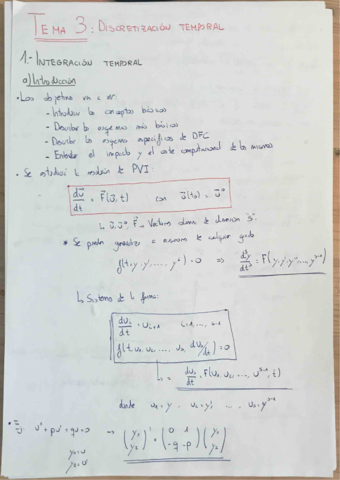 TEMA 3: DISCRETIZACIÓN TEMPORAL
1.- INTEGRACIÓN TEMPORAL
a) Introducción
• Los objetivos van a ser:
- Introducir los conceptos básicos
- Describir los esquemas más básicos
- Describir los esquemas específicos de DFC
- Entender el impacto y el coste computacional de los mismos
• Se estudiará la resolución de PVI:
du/dt = F(u, t) con u(t₀) = u⁰
↳ u, u⁰, F = Vectores columna de dimensión "s"
* Se puede generalizar a ecuaciones de cualquier grado
f(t, y, y', ..., yˢ) = 0 ⇒
↳ Sistema de la forma:
duᵢ/dt = uᵢ₊₁ i=1, ..., s-1
f(t, u₁, u₂, ..., uₛ, duₛ/dt) = 0
donde u₁ = y u₂ = y' ... uₛ = yˢ⁻¹
• Ej: u'' + pu' + qu = 0 → (y₁ y₂)' = (0 1 -q -p) (y₁ y₂)
y₁ = u
y₂ = u'